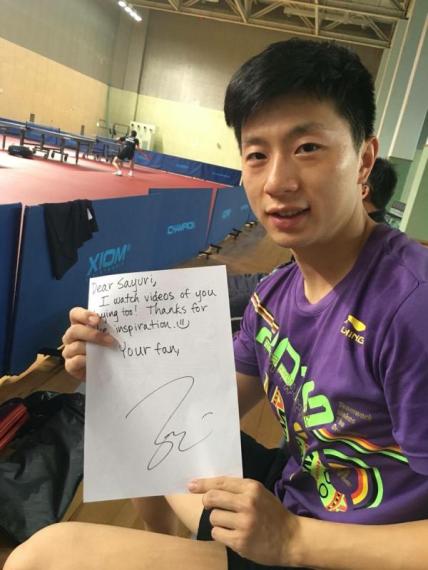 XIOM
CHAMPION
Dear Sayuri,
I watch videos of you
too! Thanks for
inspiration.
Your fan,
LI-NING